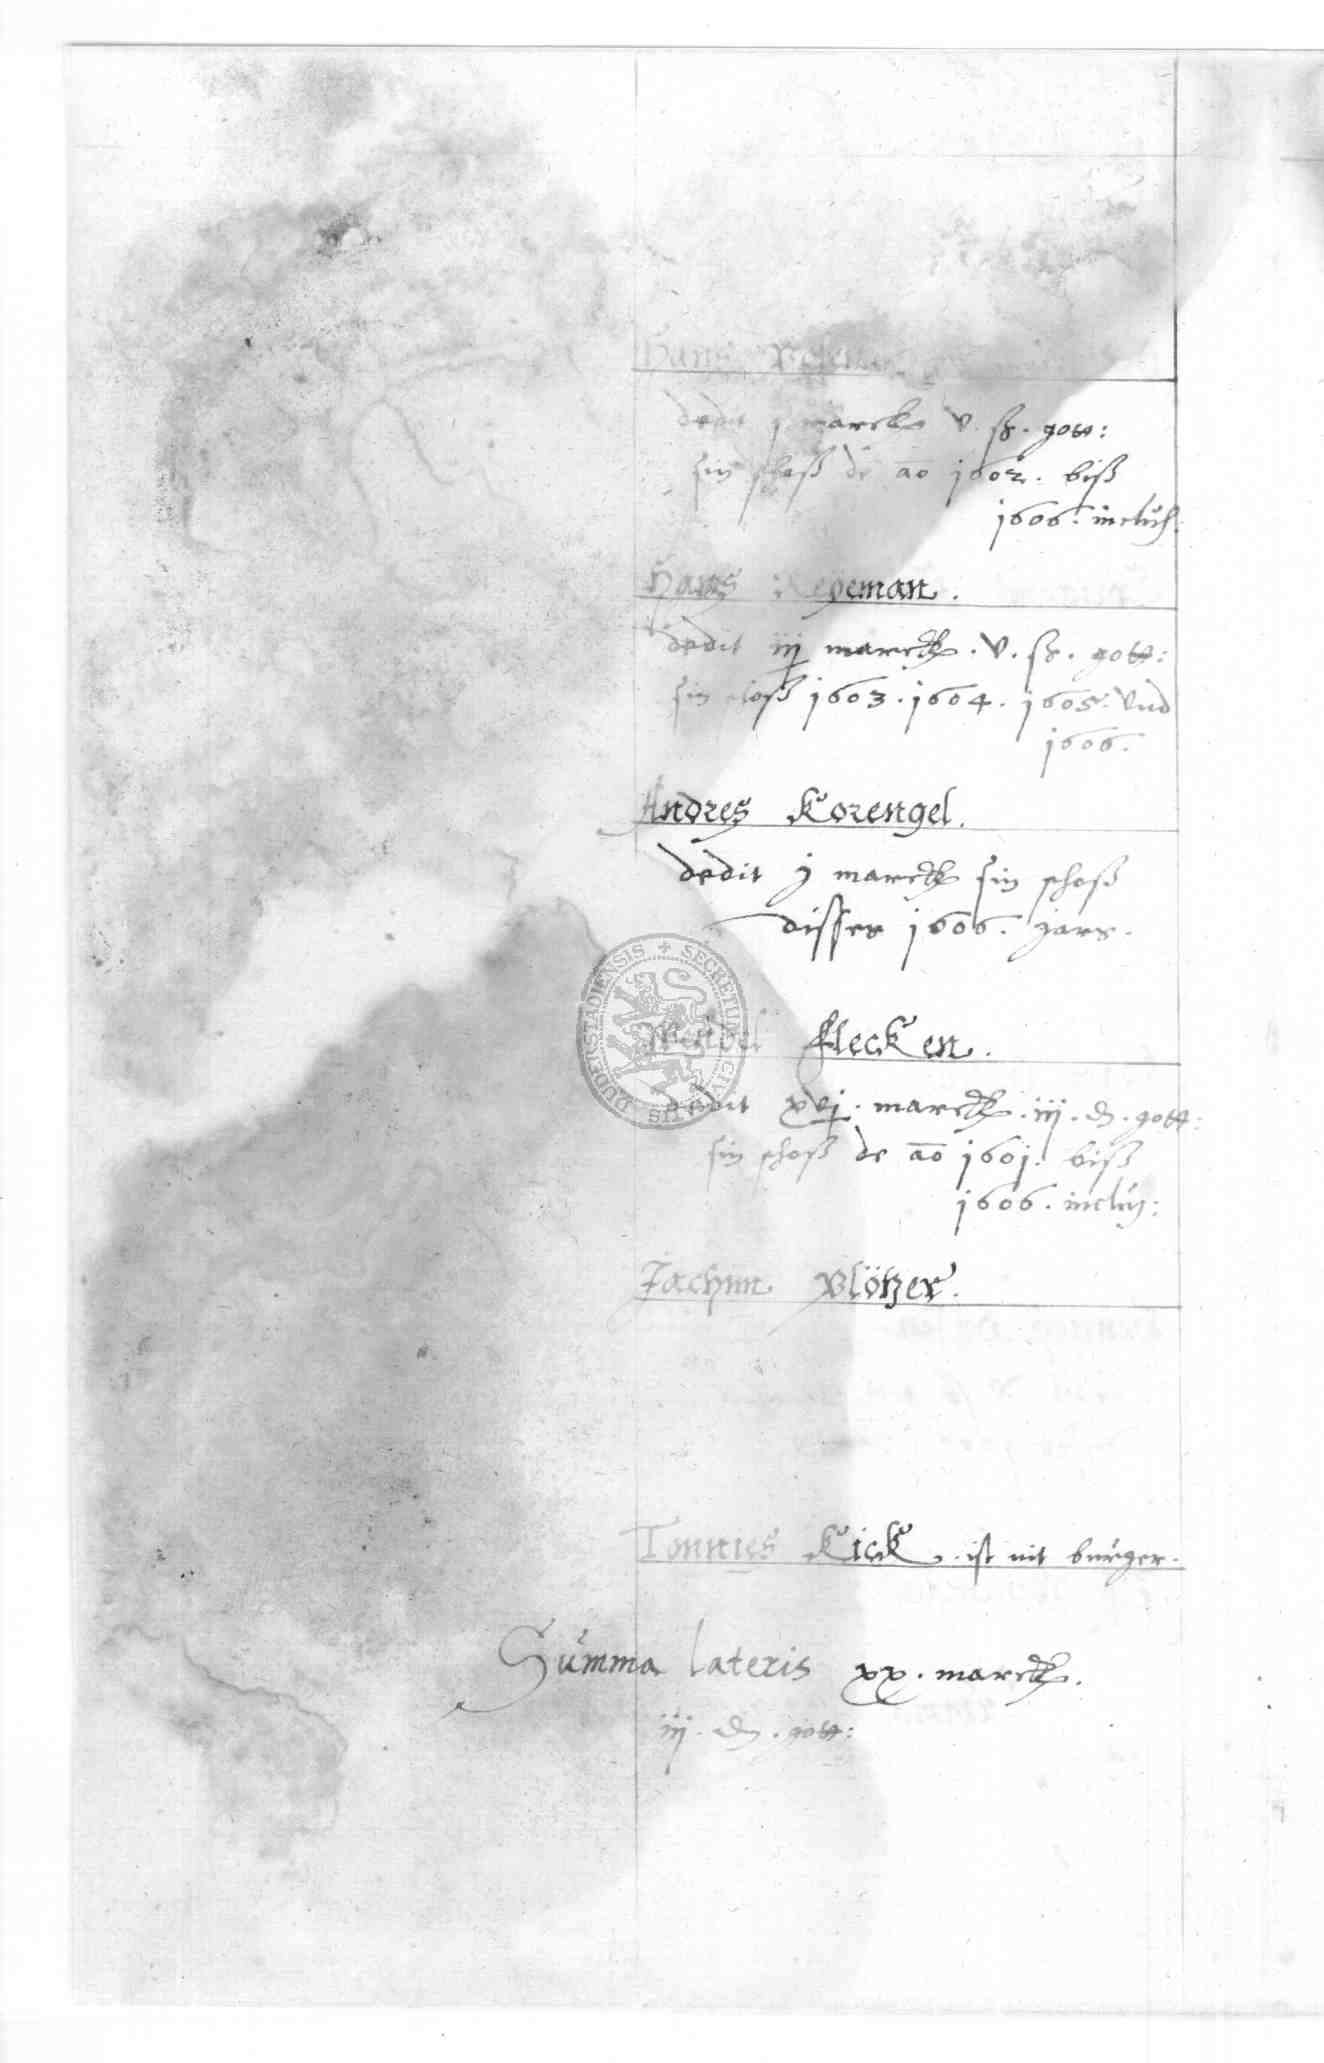 Hans
dedit j marck v. sz. gott:
sin schoß de ao 1602. biß
1606. inclus.
Hans Reyeman.
dedit iij marck. v. sz. gott:
sin schoß 1603. 1604. 1605. vnd
1606.
Andres Korengel.
dedit j marck sin schoß
disses 1606. jars.
Wendel flecken.
dedit xvj. marck. iij. d. gott:
sin schoß de ao 1601. biß
1606. inclus:
Jachim Plötzer.
Tonnies Kick. ist nit burger.
Summa lateris xx. marck.
iij. d. gott:
SECRETUM CIVIUS DUDERSTADIENSIS